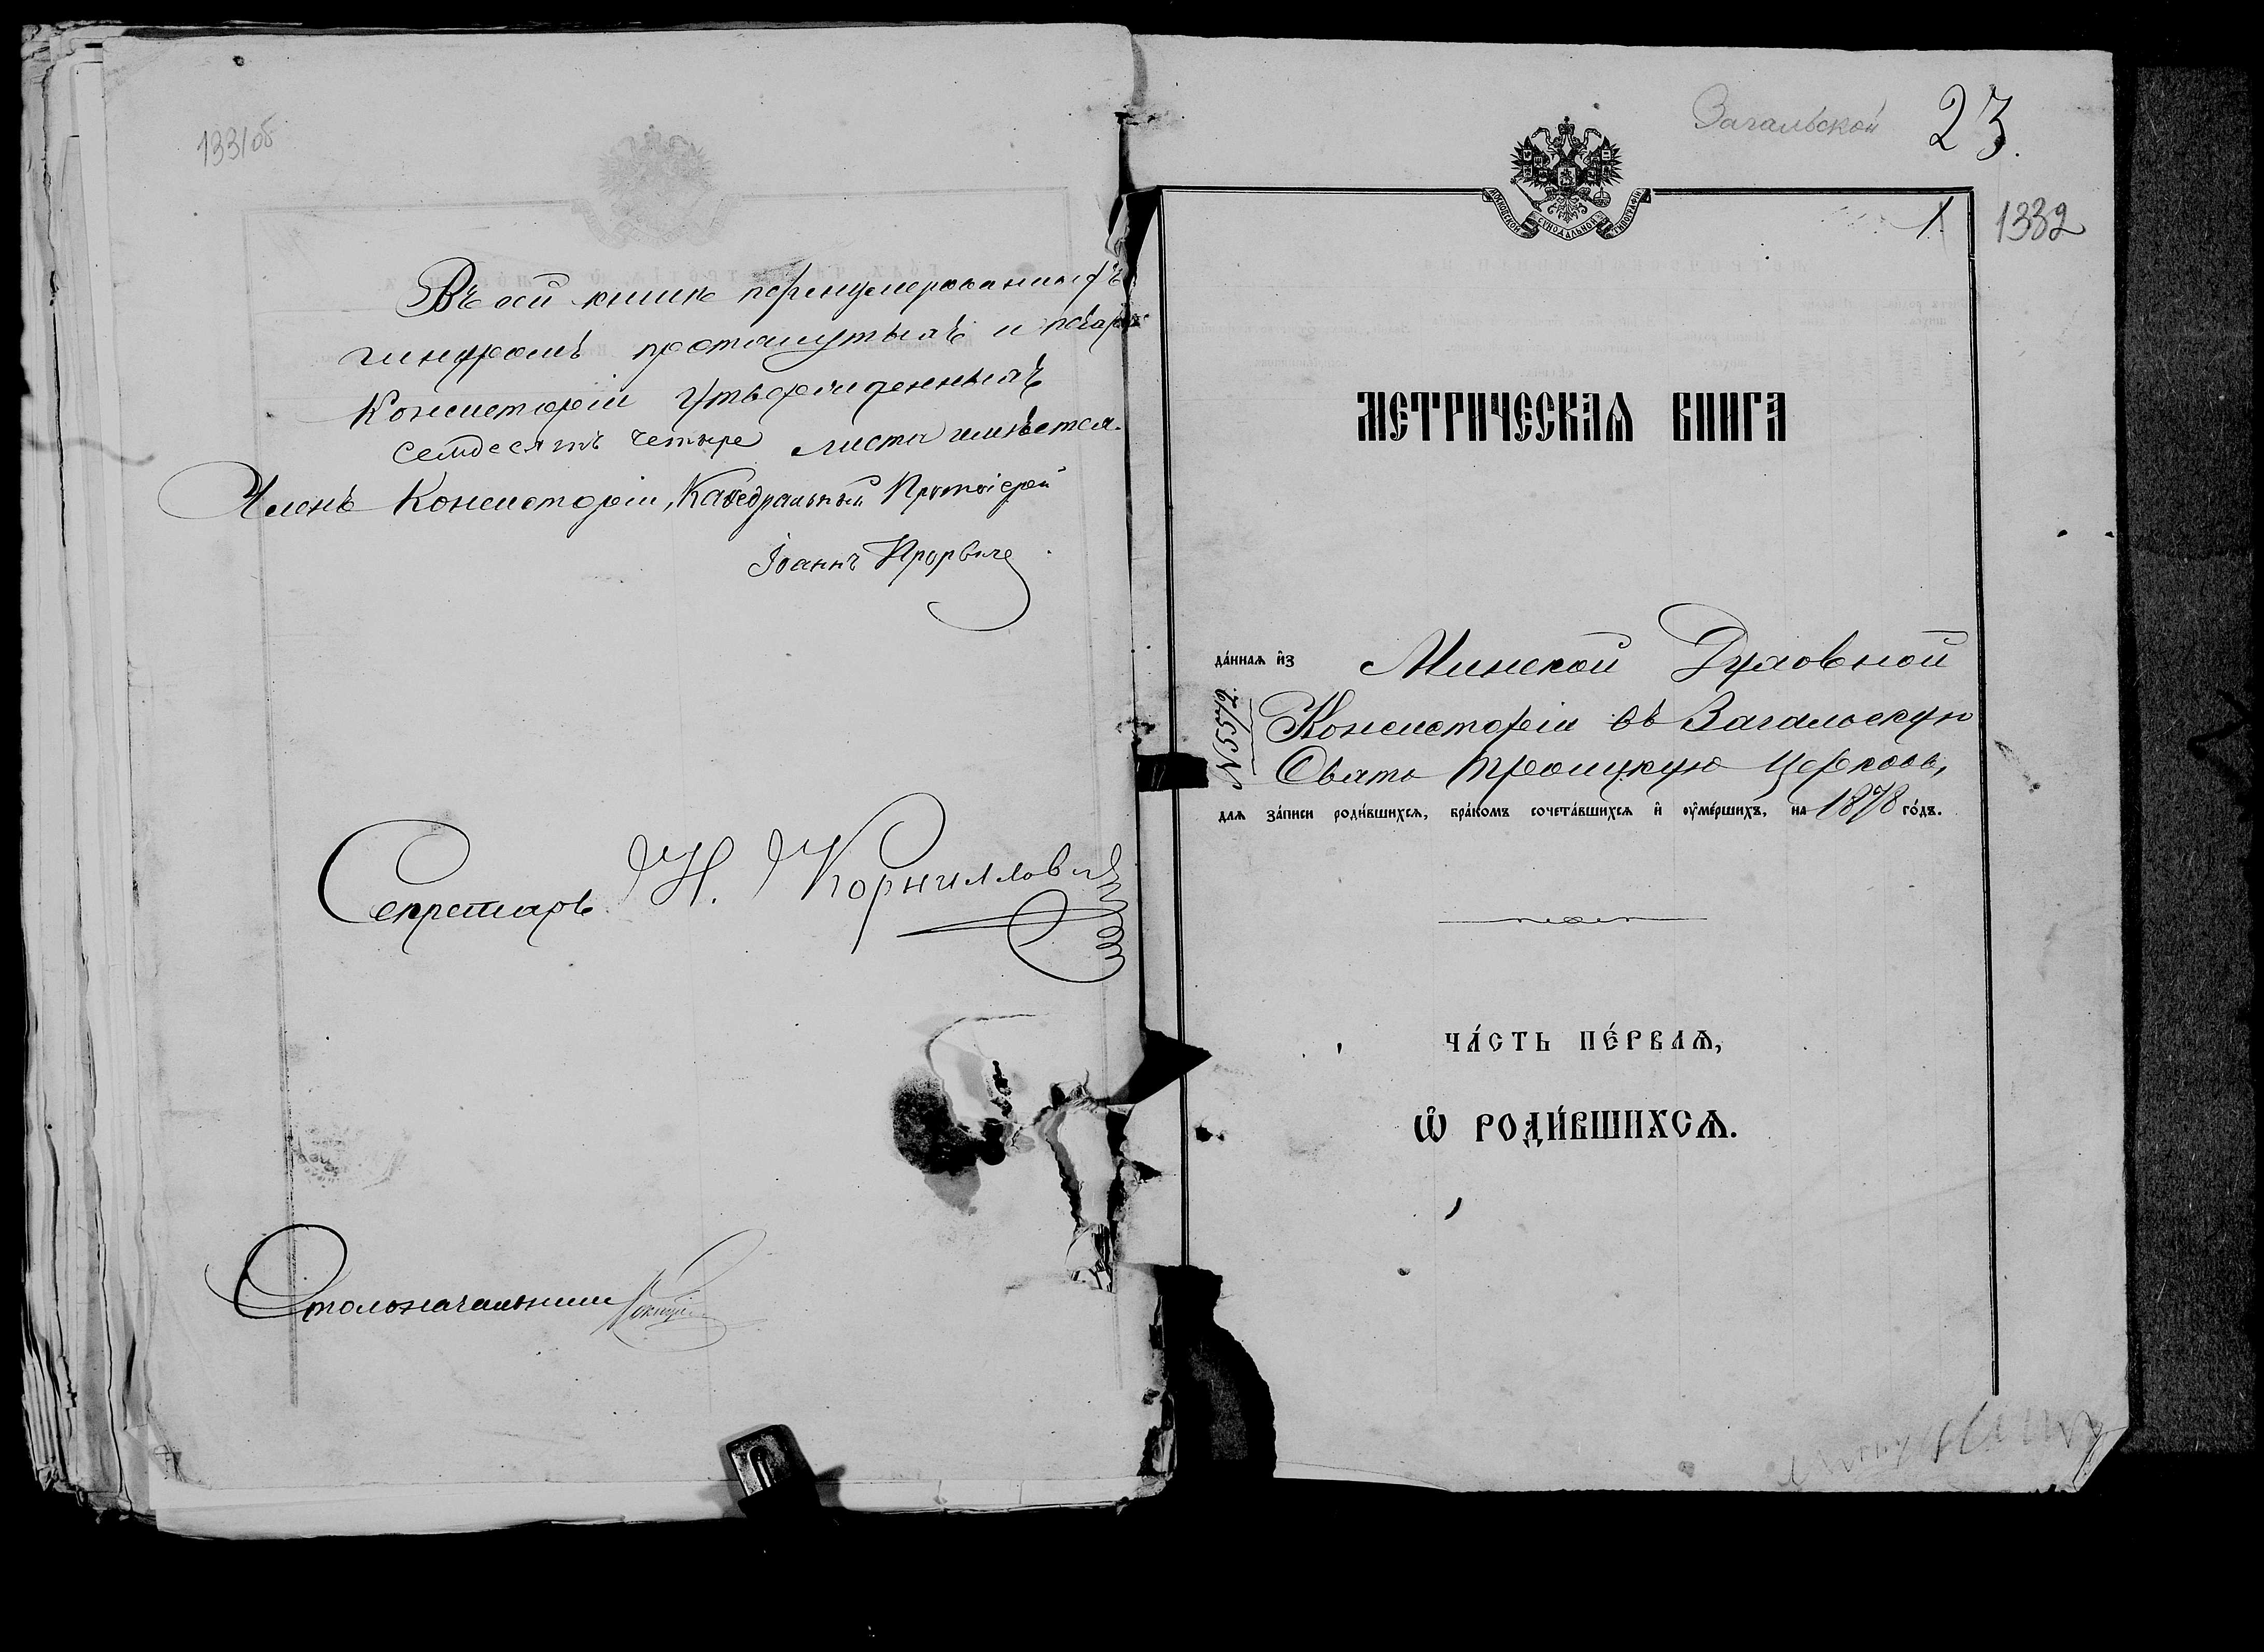 1331об
Въ сей книгѣ перенумерованныхъ
шнуромъ протянутыхъ и печатью
Консисторіи утвержденныхъ
семдесятъ четыре листа имѣется.
Членъ Консисторіи, Каѳедральный Протоіерей
Іоаннъ
Секретарь Н. Корнилович
Столоначальник
Загальской 23.
МОСКОВСКОЙ СѴНОДАЛЬНОЙ ТИПОГРАФІИ
1. 1332
МЕТРИЧЕСКАѦ КНИГА
да́ннаѧ и҆з Минской Духовной
Консисторіи въ Загальскую
Свято Троицкую Церковь,
№ 5572
длѧ за́писи роди́вшихсѧ, бра́комъ сочета́вшихсѧ и҆ оу҆ме́ршихъ, на 1878 го́дъ.
ЧА́СТЬ ПЕ́РВАѦ,
Ѡ҆ РОДИ́ВШИХСѦ.